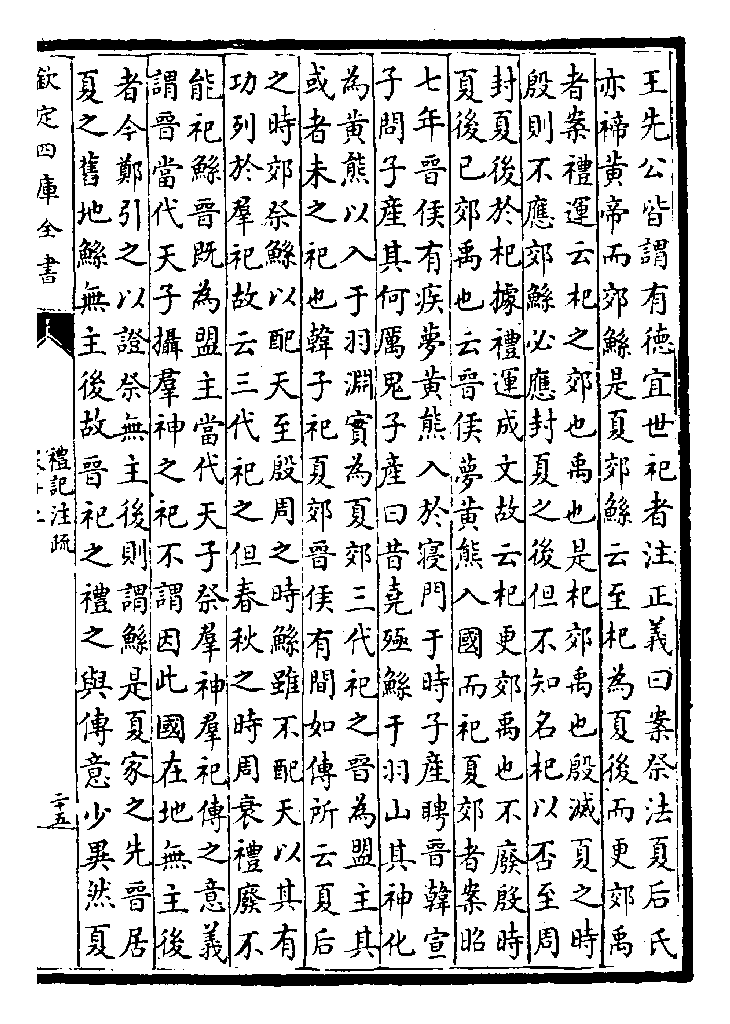 王先公皆謂有德宜世祀者注正義曰案祭法夏后氏
亦禘黃帝而郊鯀是夏郊鯀云至杞為夏後而更郊禹
者案禮運云杞之郊也禹也是杞郊禹也殷滅夏之時
殷則不應郊鯀必應封夏之後但不知名杞以否至周
封夏後於杞據禮運成文故云杞更郊禹也不廢殷時
夏後已郊禹也云晉侯夢黃熊入國而祀夏郊者案昭
七年晉侯有疾夢黃熊入於寢門于時子產聘晉韓宣
子問子產其何厲鬼子產曰昔堯殛鯀于羽山其神化
為黃熊以入于羽淵實為夏郊三代祀之晉為盟主其
或者未之祀也韓子祀夏郊晉侯有間如傳所云夏后
之時郊祭鯀以配天至殷周之時鯀雖不配天以其有
功列於羣祀故云三代祀之但春秋之時周衰禮廢不
能祀鯀晉既為盟主當代天子祭羣神羣祀傳之意義
謂晉當代天子攝羣神之祀不謂因此國在地無主後
者今鄭引之以證祭無主後則謂鯀是夏家之先晉居
夏之舊地鯀無主後故晉祀之禮之與傳意少異然夏
欽定四庫全書
禮記注疏
二十五